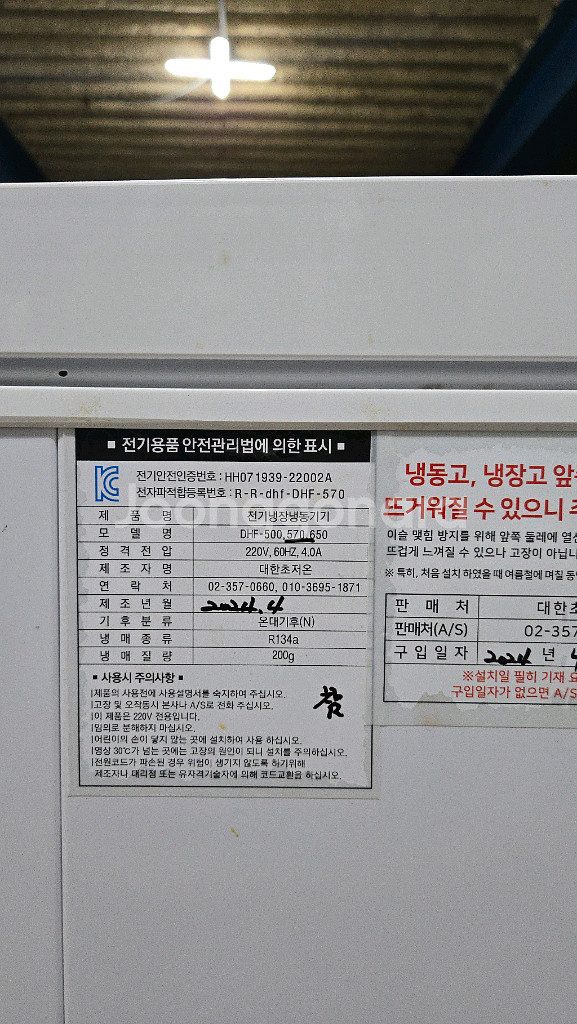 ■ 전기용품 안전관리법에 의한 표시 ■
전기안전인증번호 : HH071939-22002A
전자파적합등록번호 : R-R-dhf-DHF-570
제 품 명 전기냉장냉동기기
모 델 명 DHF-500,570,650
정 격 전 압 220V, 60HZ, 4.0A
제 조 자 명 대한초저온
연 락 처 02-357-0660, 010-3695-1871
제 조 년 월 2024.4
기 후 분 류 온대기후(N)
냉 매 종 류 R134a
냉 매 질 량 200g
■ 사용시 주의사항 ■
|제품의 사용전에 사용설명서를 숙지하여 주십시오.
|고장 및 오작동시 본사나 A/S로 전화 주십시오.
|이 제품은 220V 전용입니다.
|임의로 분해하지 마십시오.
|어린이의 손이 닿지 않는 곳에 설치하여 사용 하십시오.
|영상 30℃가 넘는 곳에는 고장의 원인이 되니 설치를 주의하십시오.
|전원코드가 파손된 경우 위험이 생기지 않도록 하기위해
제조자나 대리점 또는 유자격기술자에 의해 코드교환을 하십시오.
냉동고, 냉장고 앞
뜨거워질 수 있으니
이슬 맺힘 방지를 위해 앞쪽 둘레에 열선
뜨겁게 느껴질 수 있으나 고장이 아닙니
※ 특히, 처음 설치 하였을 때 여름철에 며칠 동
판 매 처 대한초
판매처(A/S) 02-357
구 입 일 자 2024 년
※설치일 필히 기재
구입일자가 없으면 A/S